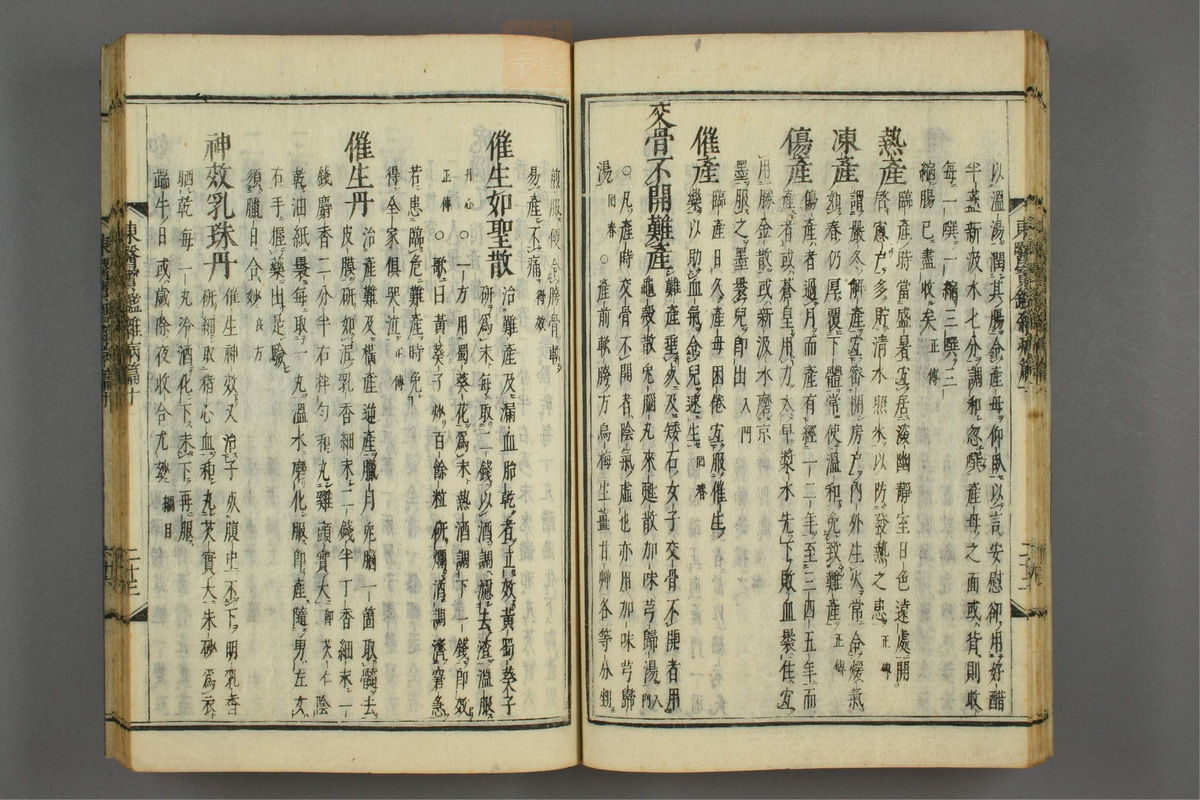 以溫湯潤其腸令產母仰臥以言安慰卻用好醋
半盞新汲水七分調和忽噀產母之面或背則收
每一噀一縮三噀三
縮腸已盡收矣正傳
熱產 產時當盛暑宜居深幽靜室日色遠處開
啓窓戶多貯清水以防發熱之患正傳
凍產 謂嚴冬解產宜密閉房戶內外生火常令煖氣
如春仍厚覆下體常使溫和免致難產正傳
傷產 傷產者過月而產有經一二年至三四五年而
產者或蒼皇用力太早漿水先下敗血裹住宜
用勝金散或新汲水磨京
墨服之墨裹兒卽出入門
催產 臨產日久產母困倦宜服催生
藥以助血氣令兒速生回春
交骨不開難產 難產垂久及矮石女子交骨不開者用
龜殼散兔腦丸來甦散加味芎歸湯入門
○凡產時交骨不開者陰氣虛也亦用加味芎歸
湯回春○產前軟膀方烏梅生薑甘艸各等分剉
煎服便令膀骨軟
易產不痛得效
催生如聖散 治難產及漏血胎乾者立效黃蜀葵子
研爲末每取二錢以酒調濾去渣溫服
丹心○一方用蜀葵花爲末熱酒調下一錢卽效
正傳○歌曰黃葵子炒百餘粒研爛酒調濟窘急
若患臨危難產時免
得全家俱哭泣正傳
催生丹 治產難及橫產逆產臘月兔腦一箇取髓去
皮膜研如泥乳香細末二錢半丁香細末一
錢麝香二分半右拌勻和丸雞頭實大卽芡仁陰
乾油紙裹每取一丸溫水磨化服卽產隨男左女
右手握藥出是驗
須臘日合妙良方
神效乳珠丹 催生神效又治子死腹中不下明乳香
研細取猪心血和丸芡實大朱砂爲衣
晒乾每一丸冷酒化下未下再服
端午日或歲除夜收合尤妙綱目
二十三